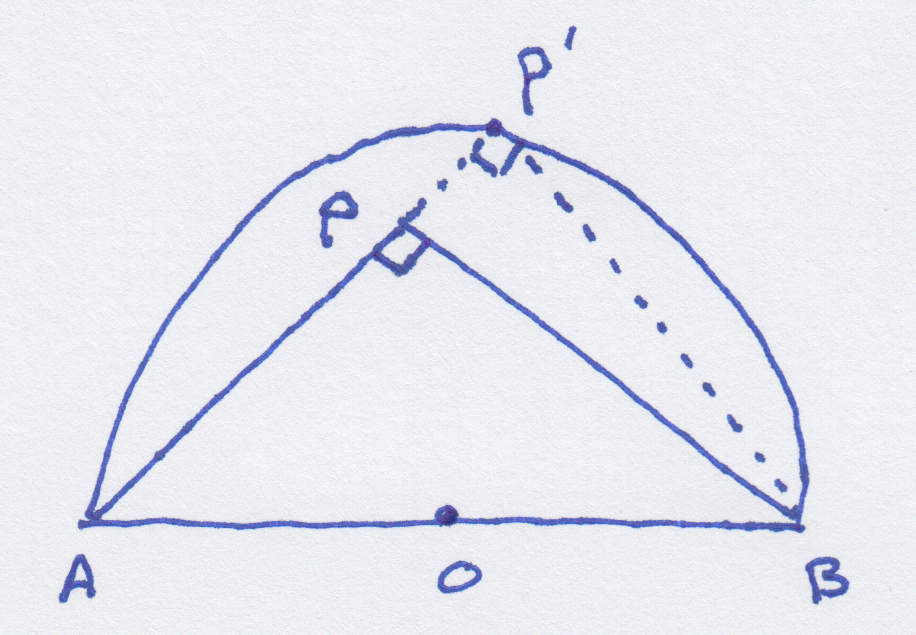 P'
P
A O B